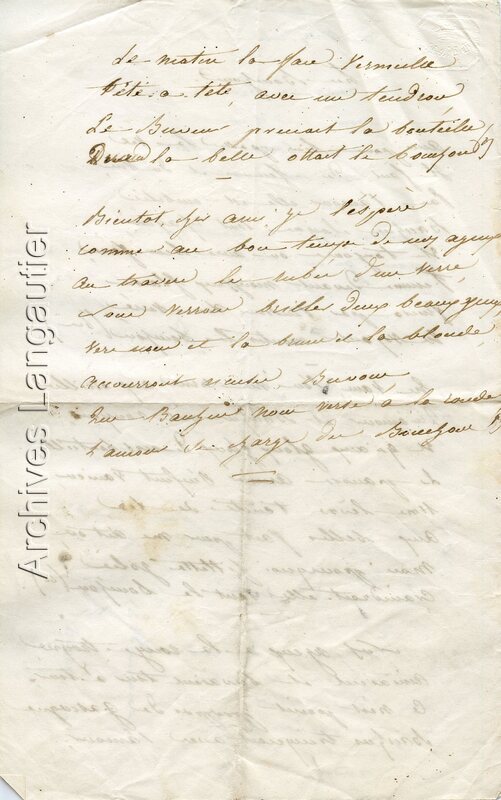 Le matin la face vermeille
Tête a tête, avec un tendron,
Le Buveur prenait la bouteille
Quand la belle ottait le bouchon
Bientot, cher ami je l'espere
comme au bon temps de nos ayeux
au travers le rubis d'un verre,
nous verrons briller deux beaux yeux
vers nous et la brune et la blonde
accourront Buvons
Que Bacchus nous verse a la ronde
L'amour se charge du Bouchon
Archives Langautier